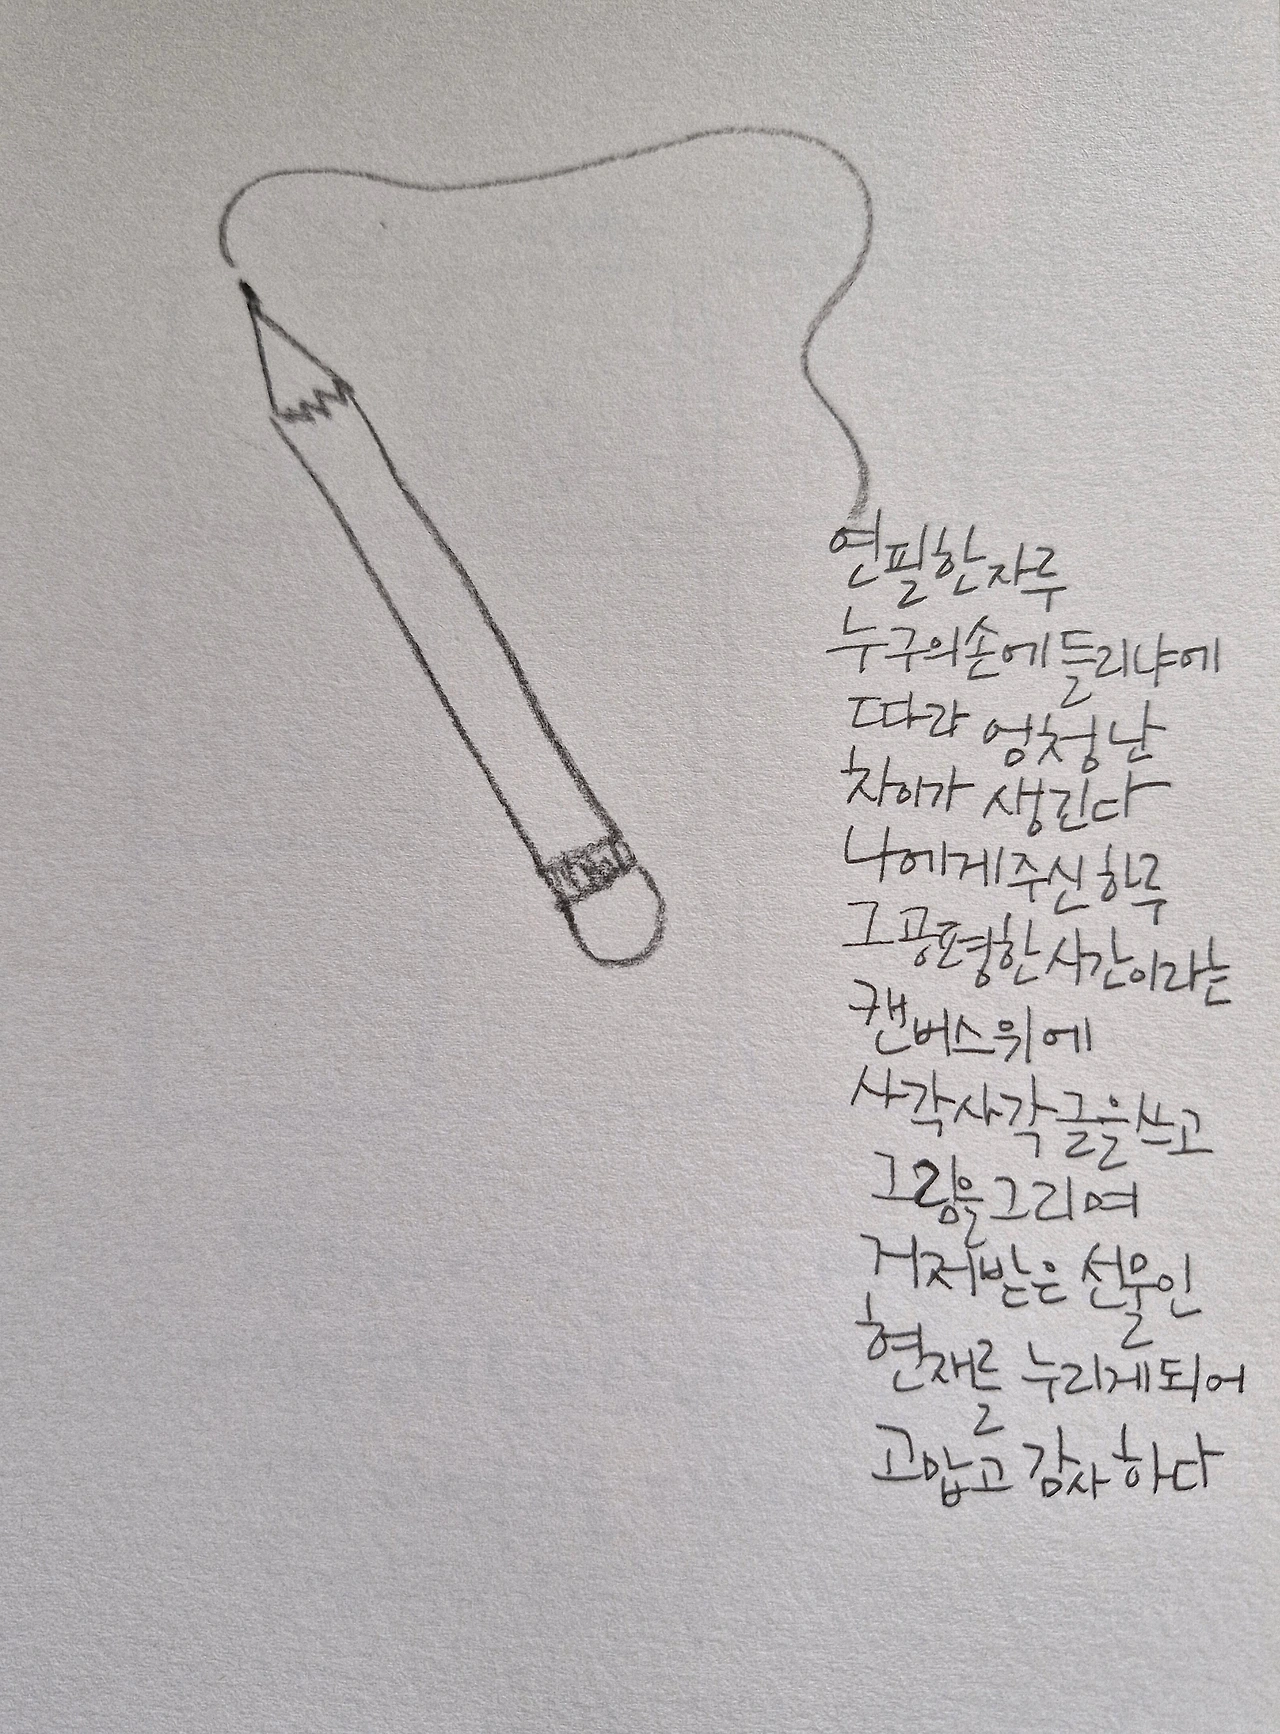 연필한자루
누구의손에들리냐에
따라 엉청난
차이가 생긴다
나에게주신하루
그공평한시간이라는
캔버스위에
사각사각글을쓰고
그림을그리며
거저받은 선물인
현재를 누리게되어
고맙고 감사하다